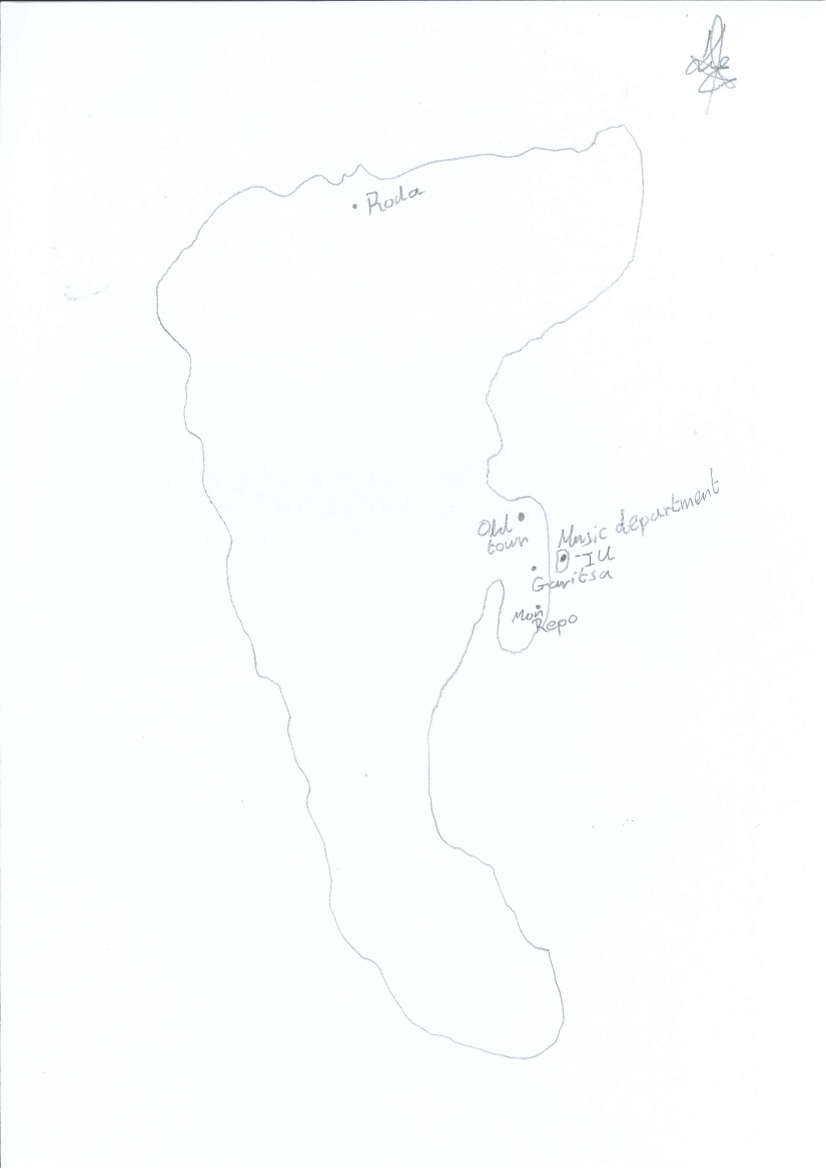 Roda
Old
town
Music department
- IU
Garitsa
Mon
Repo